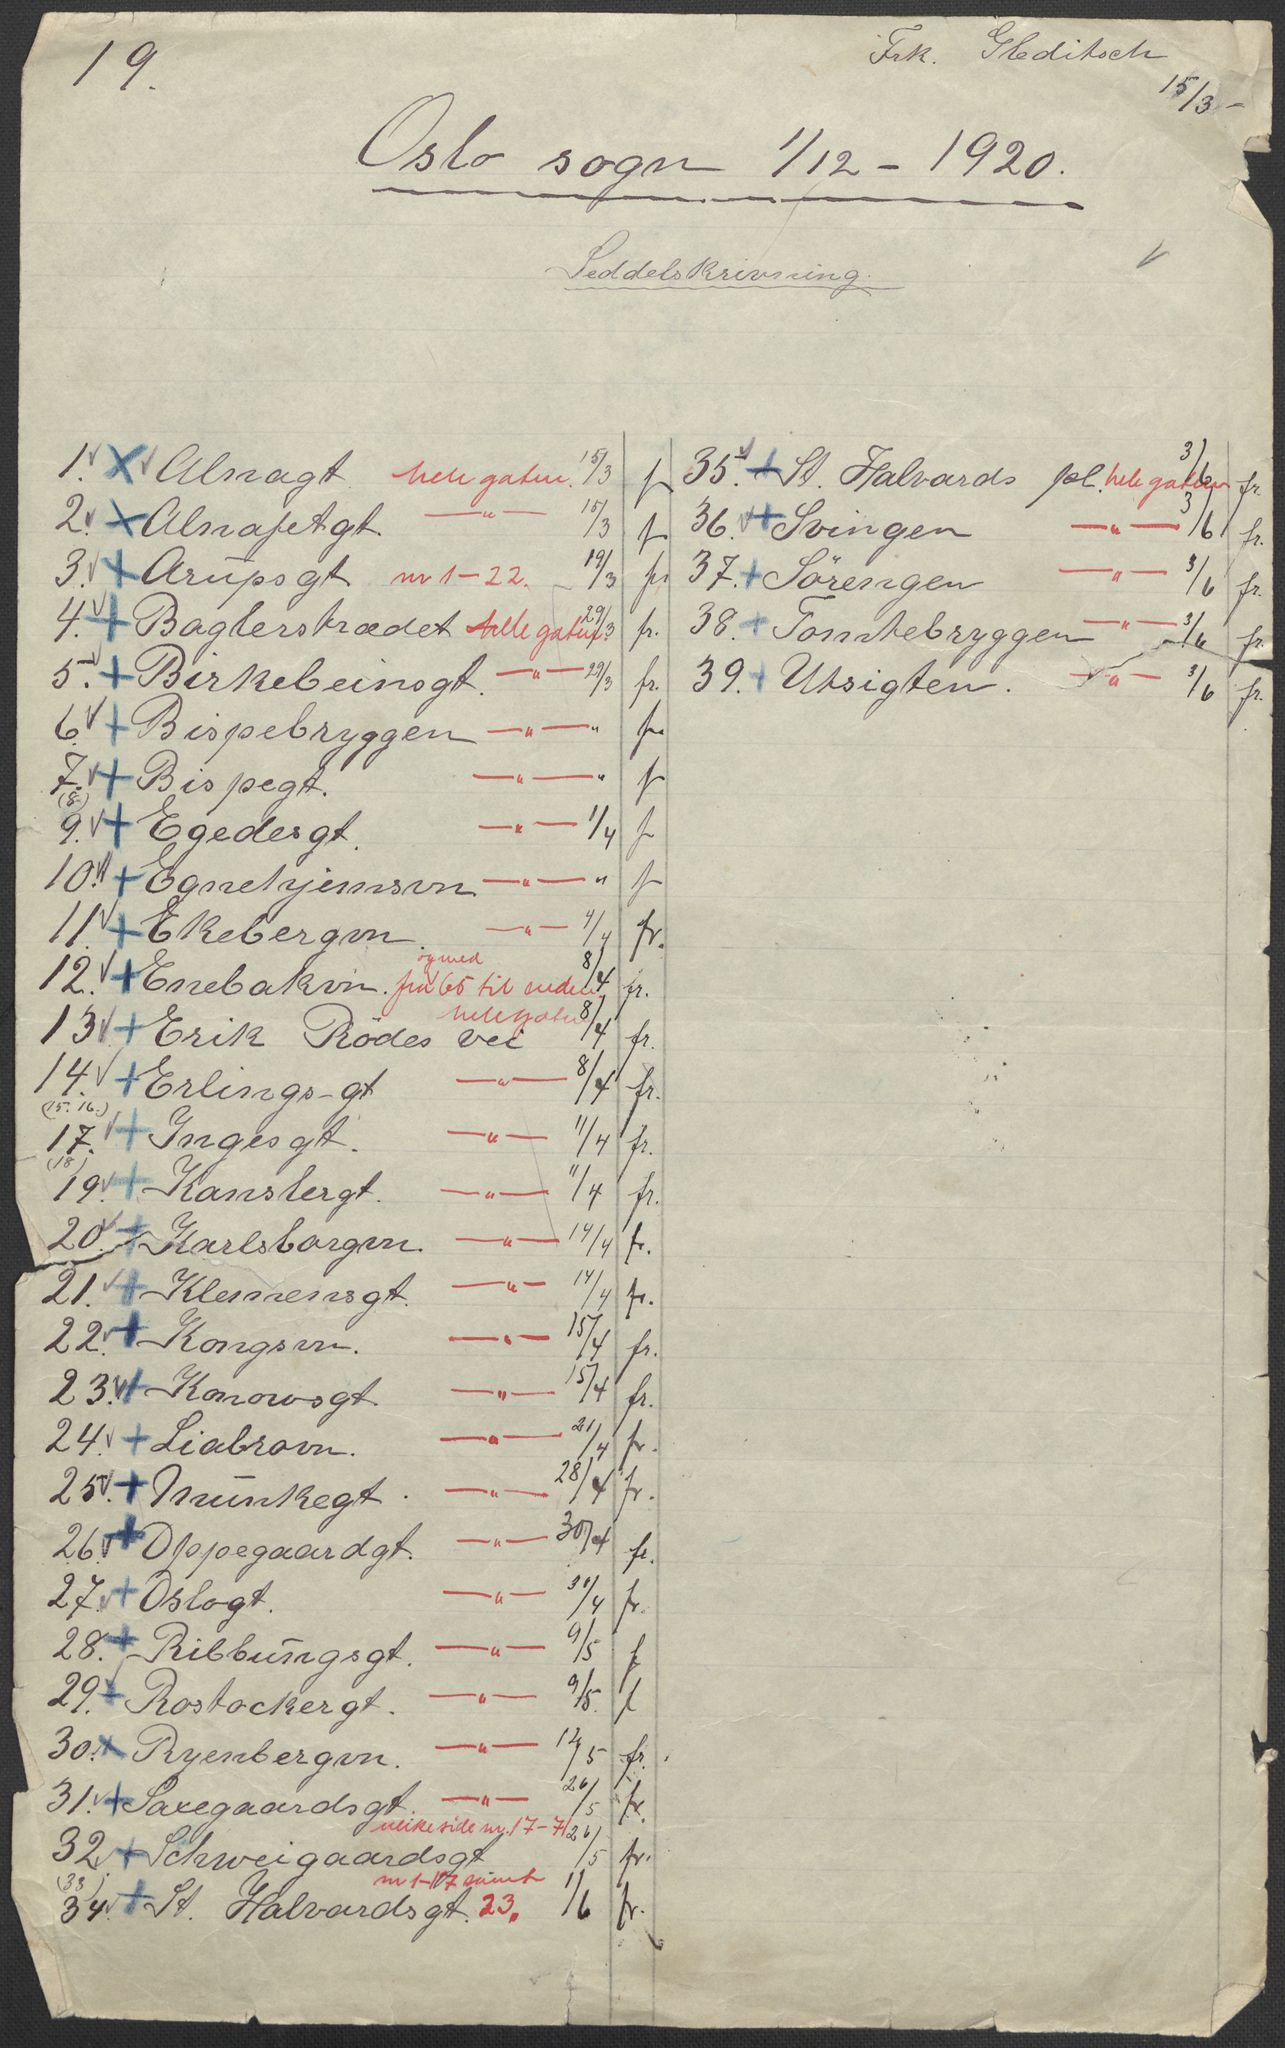 19.
Frk. Gleditsch
15/3 -
Oslo sogn 1/12 - 1920.
Seddelskrivning.
1. Alnagt. hele gaten. 15/3 f
2. Alnafetgt. —"— 15/3 f
3. Arupsgt nr 1-22. 19/3 fr
4. Baglerstrædet hele gaten 29/3 fr.
5. Birkebeinsgt. —"— 29/3 fr.
6. Bispebryggen —"— " fr
7. Bispegt. —"— " f
(8.)
9. Egedesgt. —"— 1/4 f
10. Egnehjemsvn —"— " f
11. Ekebergvn. —"— 4/4 fr.
og med
12. Enebakvn. fra 65 til enden 8/4 fr.
hele gaten
13. Erik Rödes vei 8/4 fr.
14. Erlings-gt —"— 8/4 fr.
(15. 16.)
17. Ingesgt. —"— 11/4 fr.
(18)
19. Kanslergt. —"— 11/4 fr.
20. Karlsborgvn. —"— 14/4 fr.
21. Klemensgt. —"— 14/4 fr.
22. Kongsvn. —"— 15/4 fr.
23. Konowsgt. —"— 15/4 fr.
24. Liabrovn. —"— 21/4 fr.
25. Munkegt. —"— 28/4 fr.
26. Oppegaardgt. —"— 30/4 fr.
27. Oslogt. —"— 30/4 fr.
28. Ribbungsgt. —"— 9/5 f
29. Rostockergt. —"— 9/5. f
30. Ryenbergvn. —"— 12/5 fr.
31. Saxegaardsgt. —"— 26/5 fr.
ulike side nr. 17-71
32. Schweigaardsgt 26/5 fr.
(33)
nr 1-17 samt
34. St. Halvardsgt. 23. 1/6 fr.
35. St. Halvards pl. hele gaten 3/6 fr.
36. Svingen —"— 3/6 fr.
37. Sörengen —"— 3/6 fr.
38. Tomtebryggen —"— 3/6 fr.
39. Utsigten. —"— 3/6 fr.